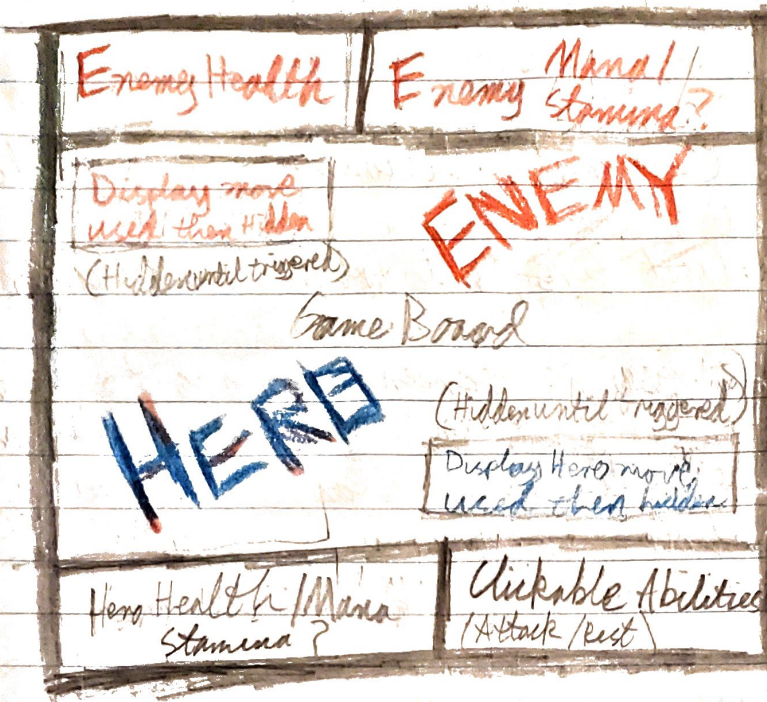 Enemy Health
Enemy Mana/
Stamina?
Display move
used then Hidden
(Hidden until triggered)
ENEMY
Game Board
HERO
(Hidden until triggered)
Display Hero move
used then hidden
Hero Health/Mana
Stamina?
Clickable Abilities
(Attack/Rest)